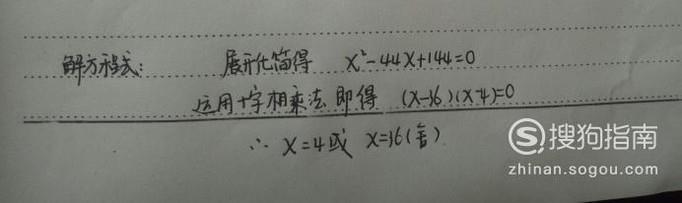 解方程式: 展开化简得 x²-44x+144=0
运用十字相乘法即得 (x-36)(x-4)=0
∴ x=4或 x=36(舍)
搜狗指南
zhinan.sogou.com